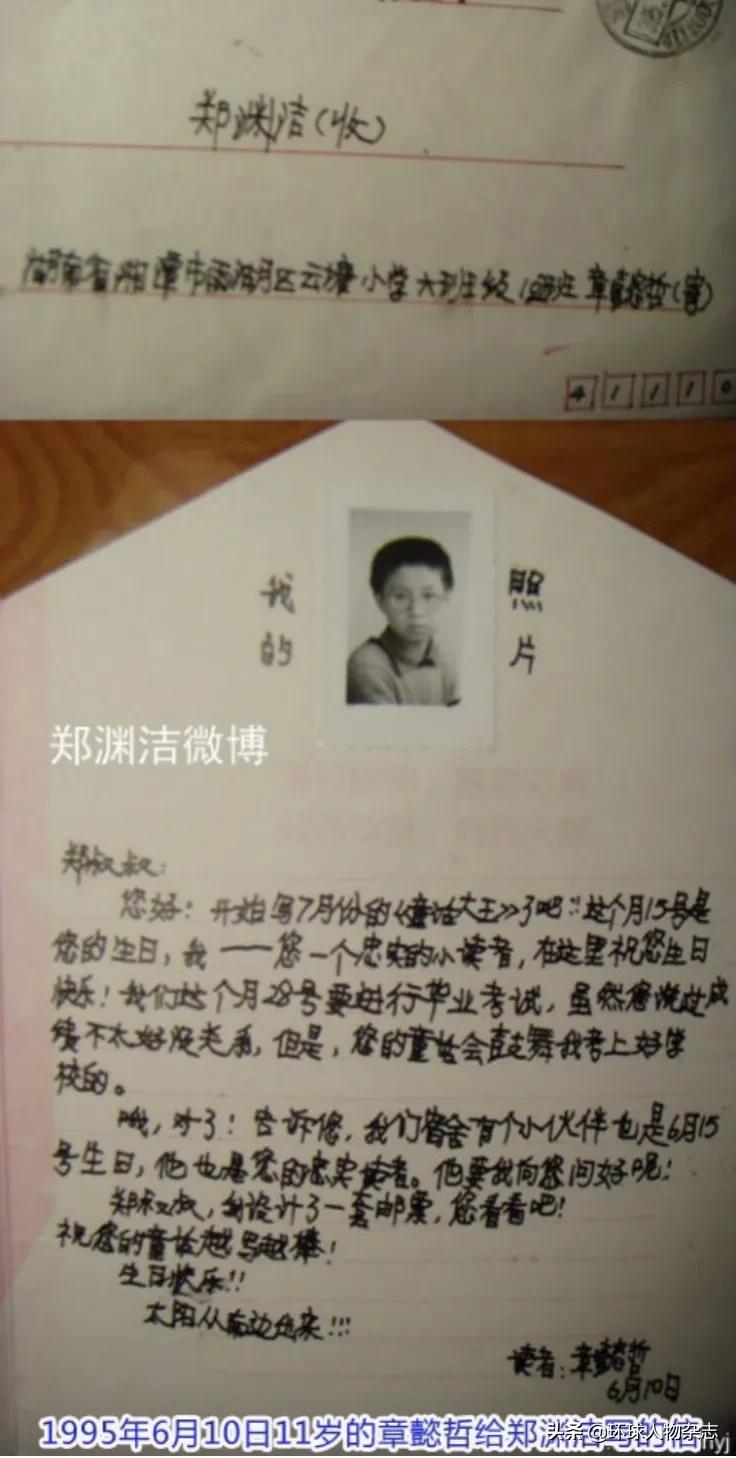 郑渊洁(收)
湖南省湘潭市雨湖区云塘小学六班年级 班 章懿哲(寄)
4 1 1 1 0
我的
照片
郑渊洁微博
郑叔叔:
您好! 开始写7月份的《童话大王》了吧!! 这个月15号是
您的生日,我——您一个忠实的小读者,在这里祝您生日
快乐! 我们这个月28号要进行毕业考试,虽然您说过成
绩不太好没关系,但是,您的童话会鼓舞我考上好学
校的。
哦,对了! 告诉您,我们宿舍有个小伙伴也是6月15
号生日,他也是您的忠实读者。他要我向您问好呢!
郑叔叔,我设计了一套邮票,您看看吧!
祝您的童话越写越棒!
生日快乐!!
太阳从 边出来!!!
读者:章懿哲
6月10日
1995年6月10日11岁的章懿哲给郑渊洁写的信
头条@环球人物杂志
nyj